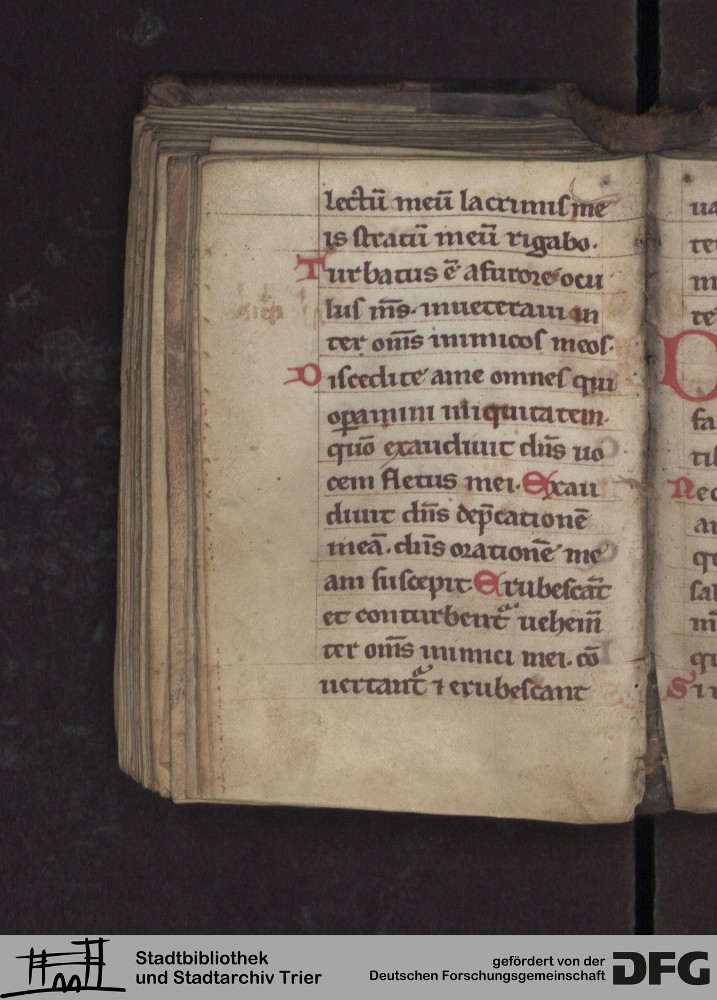 lectū meū lacrimis me
is stratū meū rigabo.
Turbatus ē a furore ocu
lus m̅s. inueteraui in
ter om̅s inimicos meos.
Discedite a me omnes qui
oꝑamini iniquitatem.
quō exaudiuit dn̅s uo
cem fletus mei. Exau
diuit dn̅s dep̄cationē
meā. dn̅s orationē me
am suscepit Erubescāt
et conturbent᷑ uehem̄
ter om̅s inimici mei. cō
uertant᷑ ⁊ erubescant
ter
te
fa
Nec
qu
sal
qu
Stadtbibliothek
und Stadtarchiv Trier
gefördert von der
Deutschen Forschungsgemeinschaft
DFG